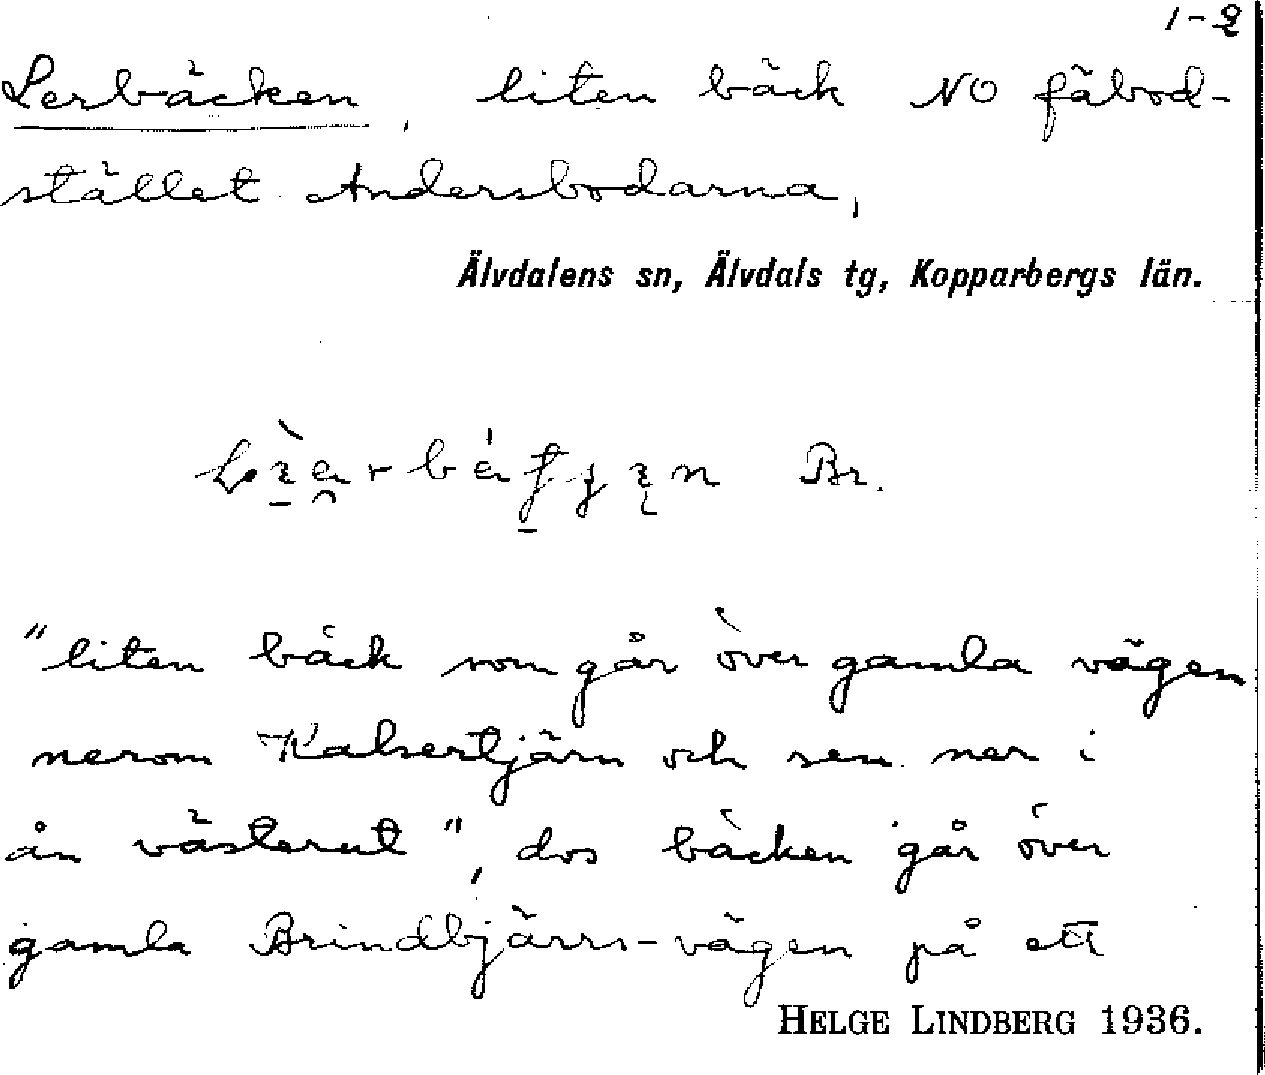 1-2
Lerbäcken, liten bäck NO fäbod-
stället Andersbodarna,
Älvdalens sn, Älvdals tg, Kopparbergs län.
Br.
"liten bäck som går över gamla vägen
nerom Kalsertjärn och sen ner i
ån västerut", dvs bäcken går över
gamla Brindbjärs-vägen på ett
HELGE LINDBERG 1936.